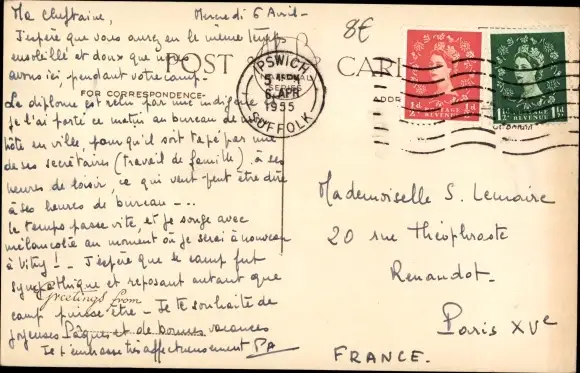 Ma cheftaine, Mercredi 6 Avril -
J'espère que vous aurez eu le même temps
ensoleillé et doux que nous
avons ici, pendant votre camp -
Le diplôme est venu par
je l'ai porté ce matin au bureau de
hôte en ville, pour qu'il soit tapé par une
de ses secrétaires (travail de famille) à ses
heures de loisir, ce qui veut peut être dire
à ses heures de bureau - ...
le temps passe vite, et je songe avec
mélancolie au moment où je serai à nouveau
à Vitry ! - J'espère que le camp fut
sympathique et reposant autant que
camp puisse être - Je te souhaite de
joyeuses Pâques et de bonnes vacances
Je t'embrasse très affectueusement PA
Greetings from
POST CARD
FOR CORRESPONDENCE
ADDR
8€
IPSWICH
6 APR
1955
SUFFOLK
POSTAGE REVENUE
½d
POSTAGE REVENUE
1½d
Mademoiselle S. Lemaire
20 rue Théophraste
Renaudot -
Paris XVe
FRANCE.